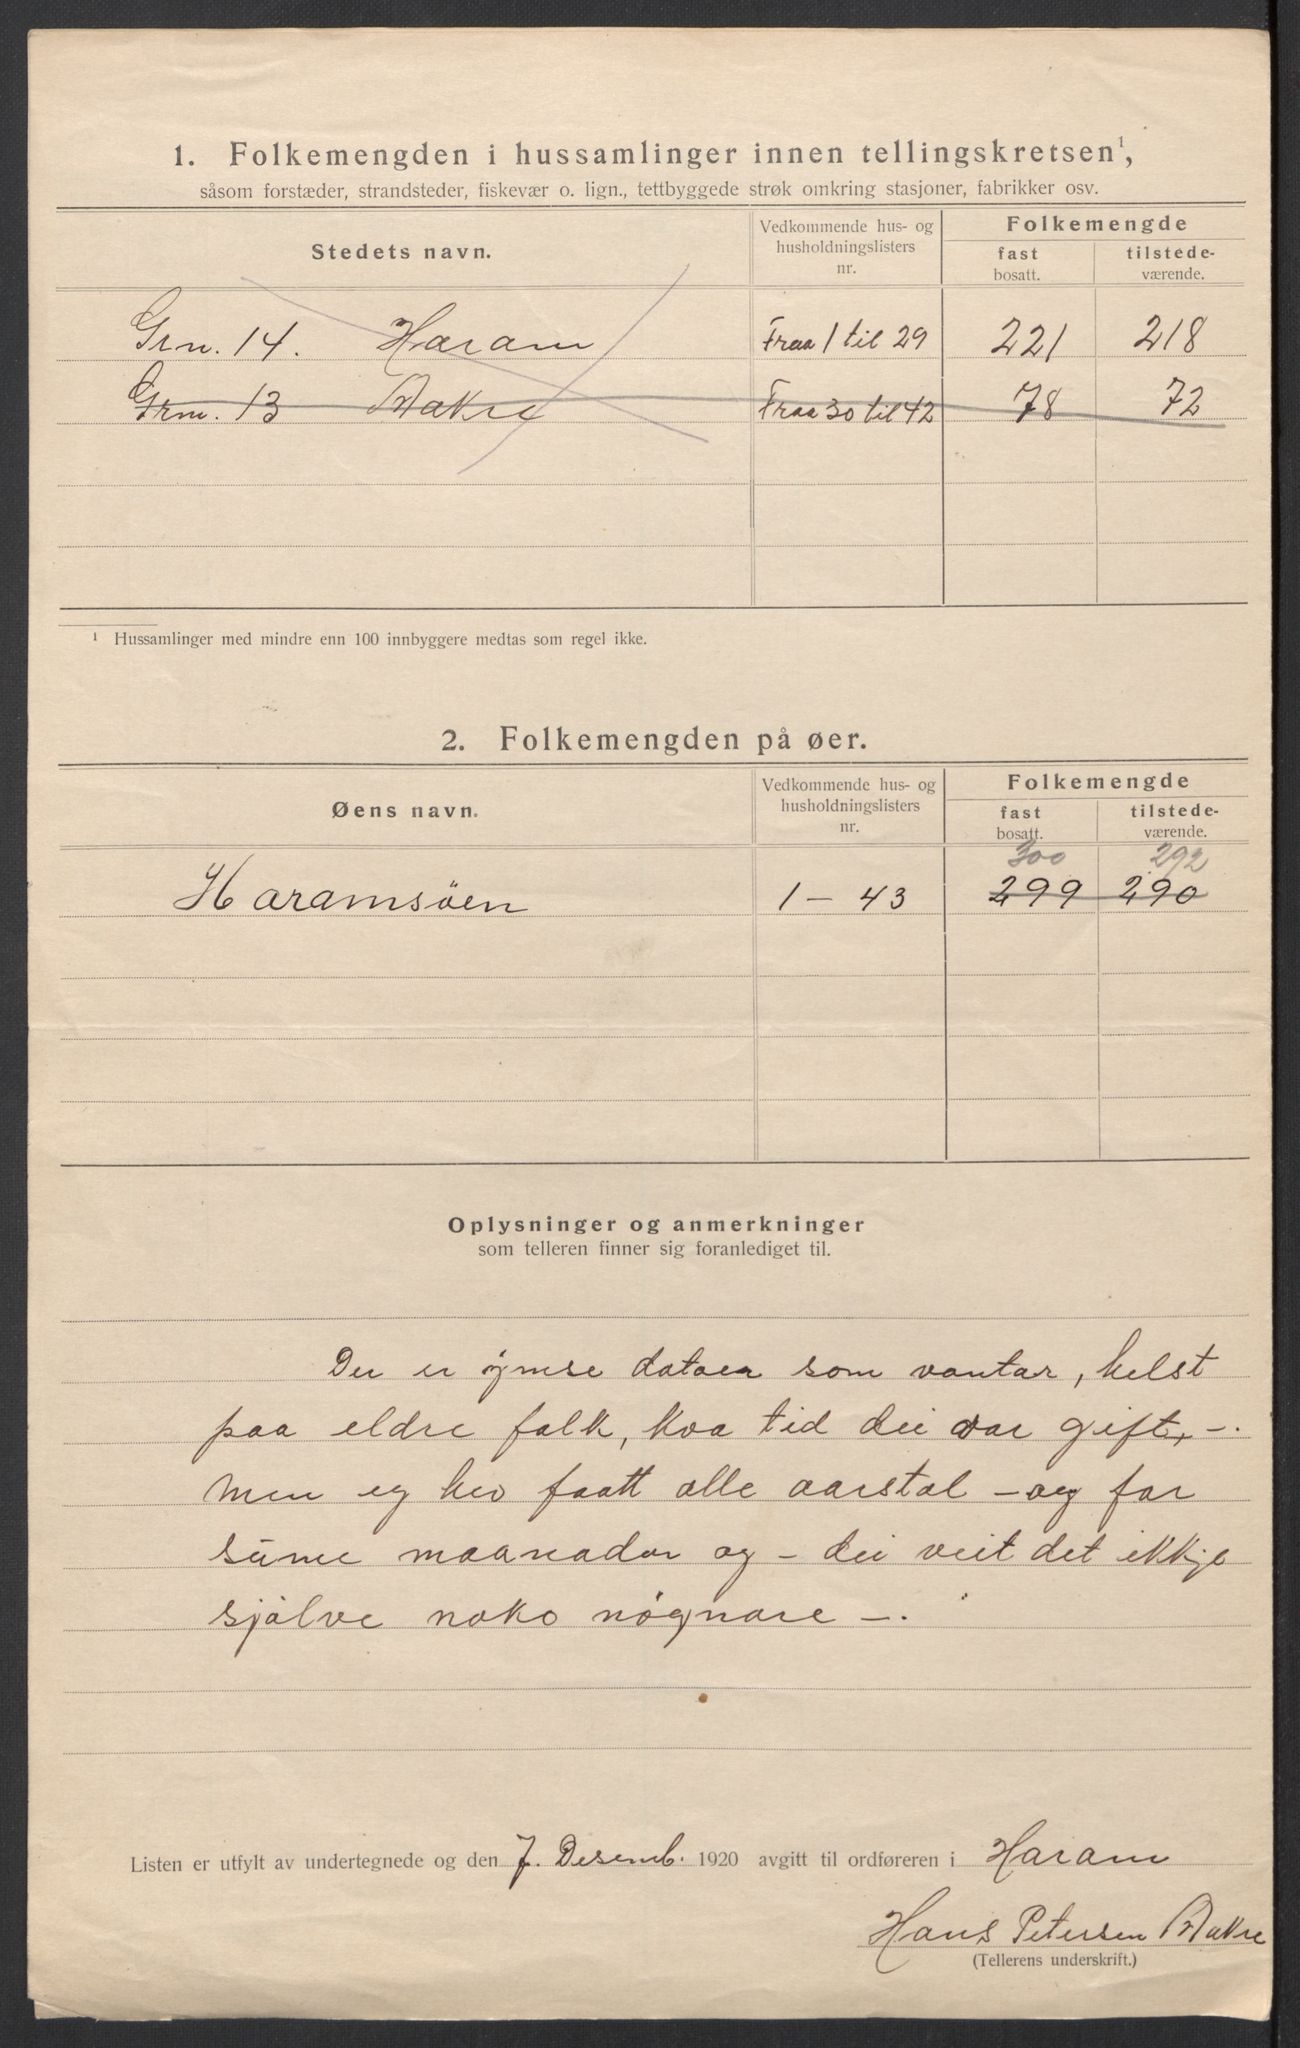 1. Folkemengden i hussamlinger innen tellingskretsen¹,
såsom forstæder, strandsteder, fiskevær o. lign., tettbyggede strøk omkring stasjoner, fabrikker osv.
Stedets navn. Vedkommende hus- og husholdningslisters nr. Folkemengde fast bosatt. tilstede-værende.
Grn. 14. Haram Fraa 1 til 29 221 218
Grn. 13 Makre Fraa 30 til 42 78 72
¹ Hussamlinger med mindre enn 100 innbyggere medtas som regel ikke.
2. Folkemengden på øer.
Øens navn. Vedkommende hus- og husholdningslisters nr. Folkemengde fast bosatt. tilstede-værende.
300 292
Haramsöen 1 – 43 299 290
Oplysninger og anmerkninger
som telleren finner sig foranlediget til.
Der er ymse datoer som vantar, helst
paa eldre folk, kva tid dei var gift, –.
Men eg hev faatt alle aarstal – og for
sume maanador og – dei veit det ikkje
sjølve noko nøgnare –.
Listen er utfylt av undertegnede og den 7. Desemb. 1920 avgitt til ordføreren i Haram
Hans Petersen Makre
(Tellerens underskrift.)